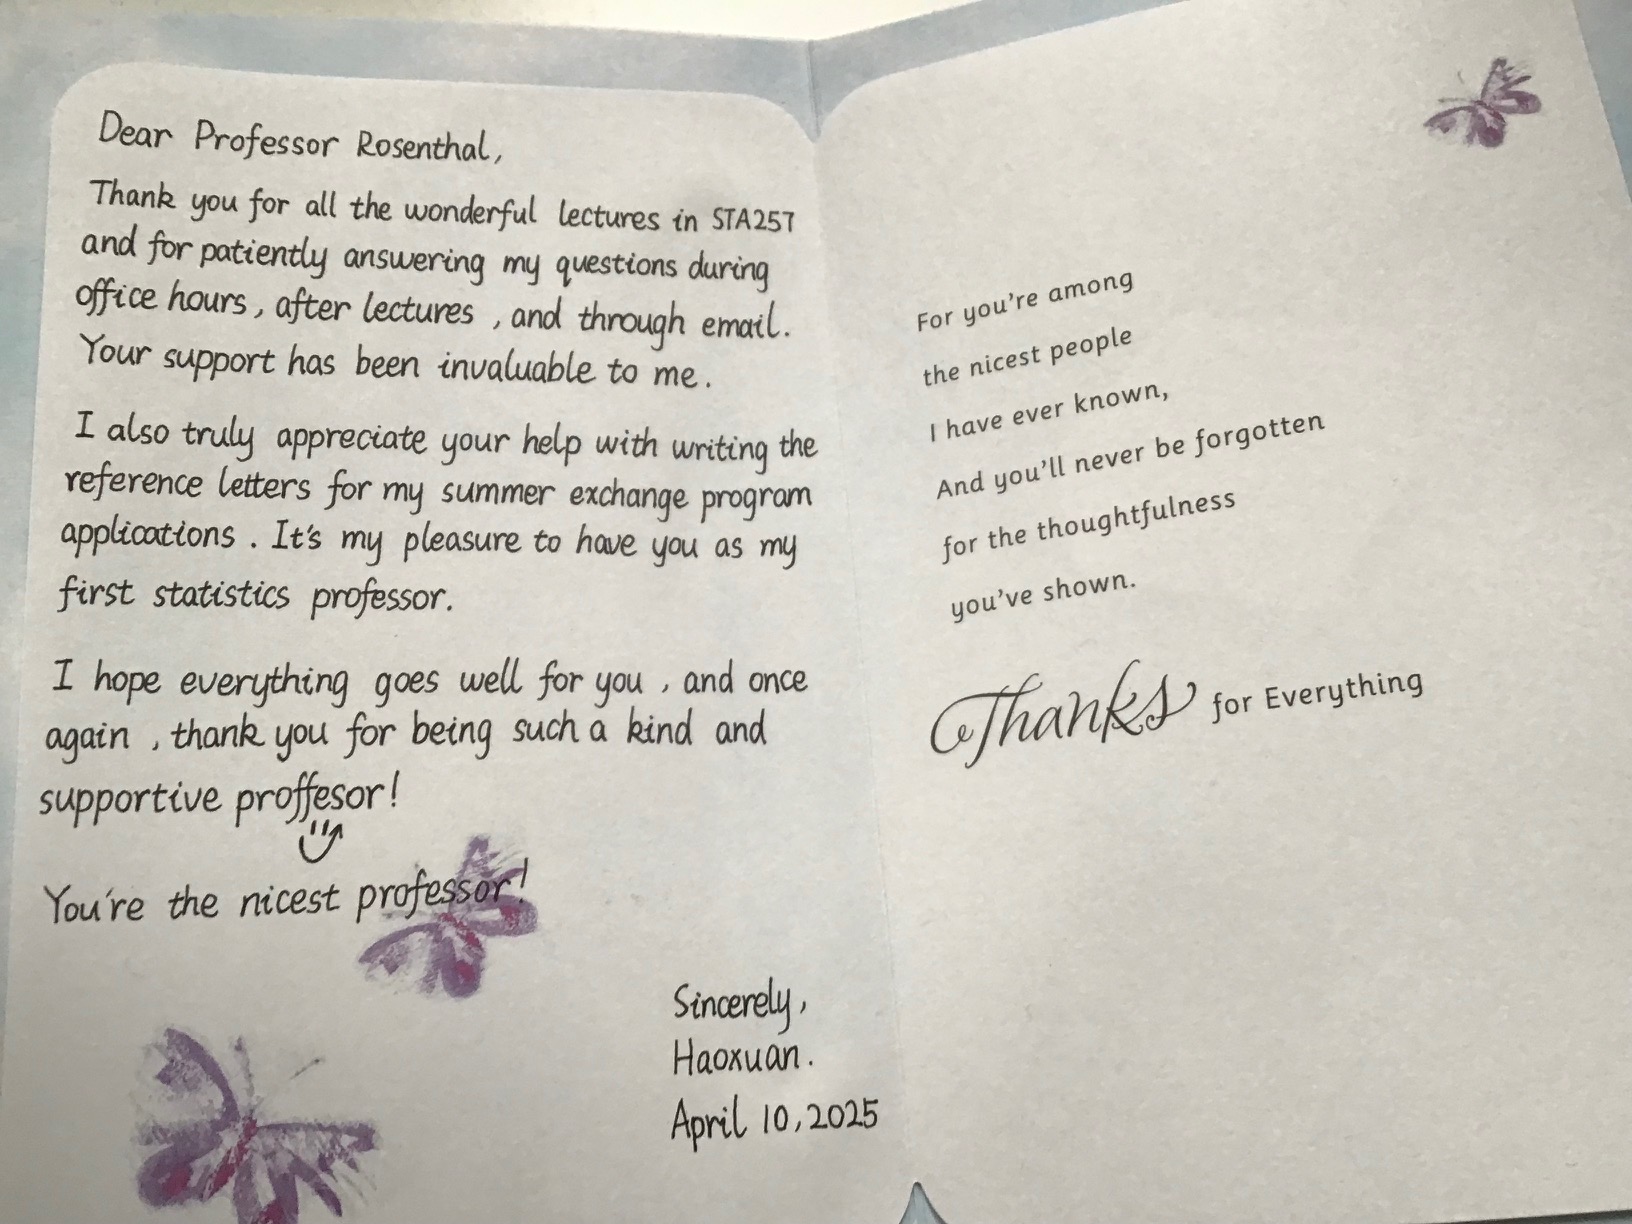 Dear Professor Rosenthal,
Thank you for all the wonderful lectures in STA257
and for patiently answering my questions during
office hours, after lectures, and through email.
Your support has been invaluable to me.
I also truly appreciate your help with writing the
reference letters for my summer exchange program
applications. It's my pleasure to have you as my
first statistics professor.
I hope everything goes well for you, and once
again, thank you for being such a kind and
supportive proffesor!
You're the nicest professor!
Sincerely,
Haoxuan.
April 10, 2025
For you're among
the nicest people
I have ever known,
And you'll never be forgotten
for the thoughtfulness
you've shown.
Thanks for Everything